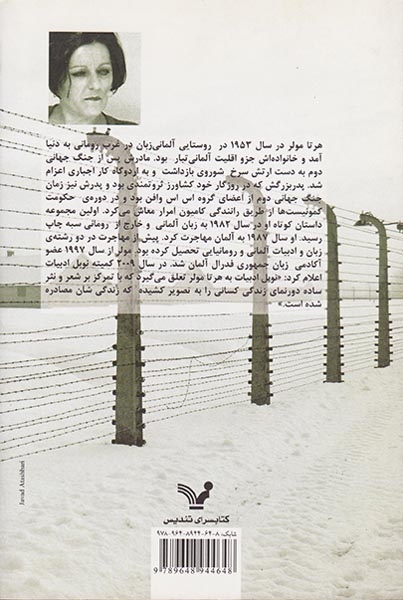 هرتا مولر در سال ۱۹۵۳ در روستایی آلمانی‌زبان در غرب رومانی به دنیا
آمد و خانواده‌اش جزو اقلیت آلمانی‌تبار بود. مادرش پس از جنگ جهانی
دوم به دست ارتش سرخ شوروی بازداشت و به اردوگاه کار اجباری اعزام
شد. پدربزرگش که در روزگار خود کشاورز ثروتمندی بود و پدرش نیز زمان
جنگ جهانی دوم از اعضای گروه اس اس وافن بود و در دوره‌ی حکومت
کمونیست‌ها از طریق رانندگی کامیون امرار معاش می‌کرد. اولین مجموعه
داستان کوتاه او در سال ۱۹۸۲ به زبان آلمانی و خارج از رومانی به چاپ
رسید. او سال ۱۹۸۷ به آلمان مهاجرت کرد. پیش از مهاجرت در دو رشته‌ی
زبان و ادبیات آلمانی و رومانیایی تحصیل کرده بود. مولر از سال ۱۹۹۷ عضو
آکادمی زبان جمهوری فدرال آلمان شد. در سال ۲۰۰۹ کمیته نوبل ادبیات
اعلام کرد: «نوبل ادبیات به هرتا مولر تعلق می‌گیرد که با تمرکز بر شعر و نثر
ساده دورنمای زندگی کسانی را به تصویر کشیده که زندگی شان مصادره
شده است.»
Javad Atashbari
کتابسرای تندیس
شابک: ۹۷۸-۹۶۴-۸۹۴۴-۶۴-۸
9789648944648